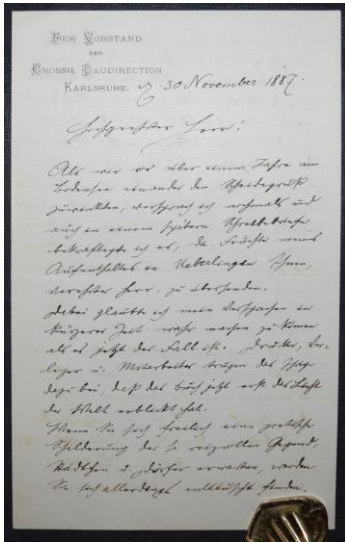 DER VORSTAND
DER
GROSSH. BAUDIRECTION
KARLSRUHE.
d. 30 November 1887.
Hochgeehrter Herr!
Als wir vor über einem Jahre am
Bodensee einander den Scheidegruß
zuwinkten, versprach ich nochmals und
auch in einem spätern Schreibebriefe
bekräftigte ich es, die Früchte meines
Aufenthaltes in Ueberlingen Ihnen,
verehrter Herr, zu übersenden.
Dabei glaubte ich mein Versprechen in
kürzerer Zeit wahr machen zu können
als es jetzt der Fall ist. Drucker, Ver-
leger u. Mitarbeiter trugen die Schuld
dazu bei, daß das Buch jetzt erst das Licht
der Welt erblickt hat.
Wenn Sie sich freilich eine poetische
Schilderung der so reizvollen Gegend,
Städtchen u. Dörfer erwarten, werden
Sie sich allerdings enttäuscht finden.